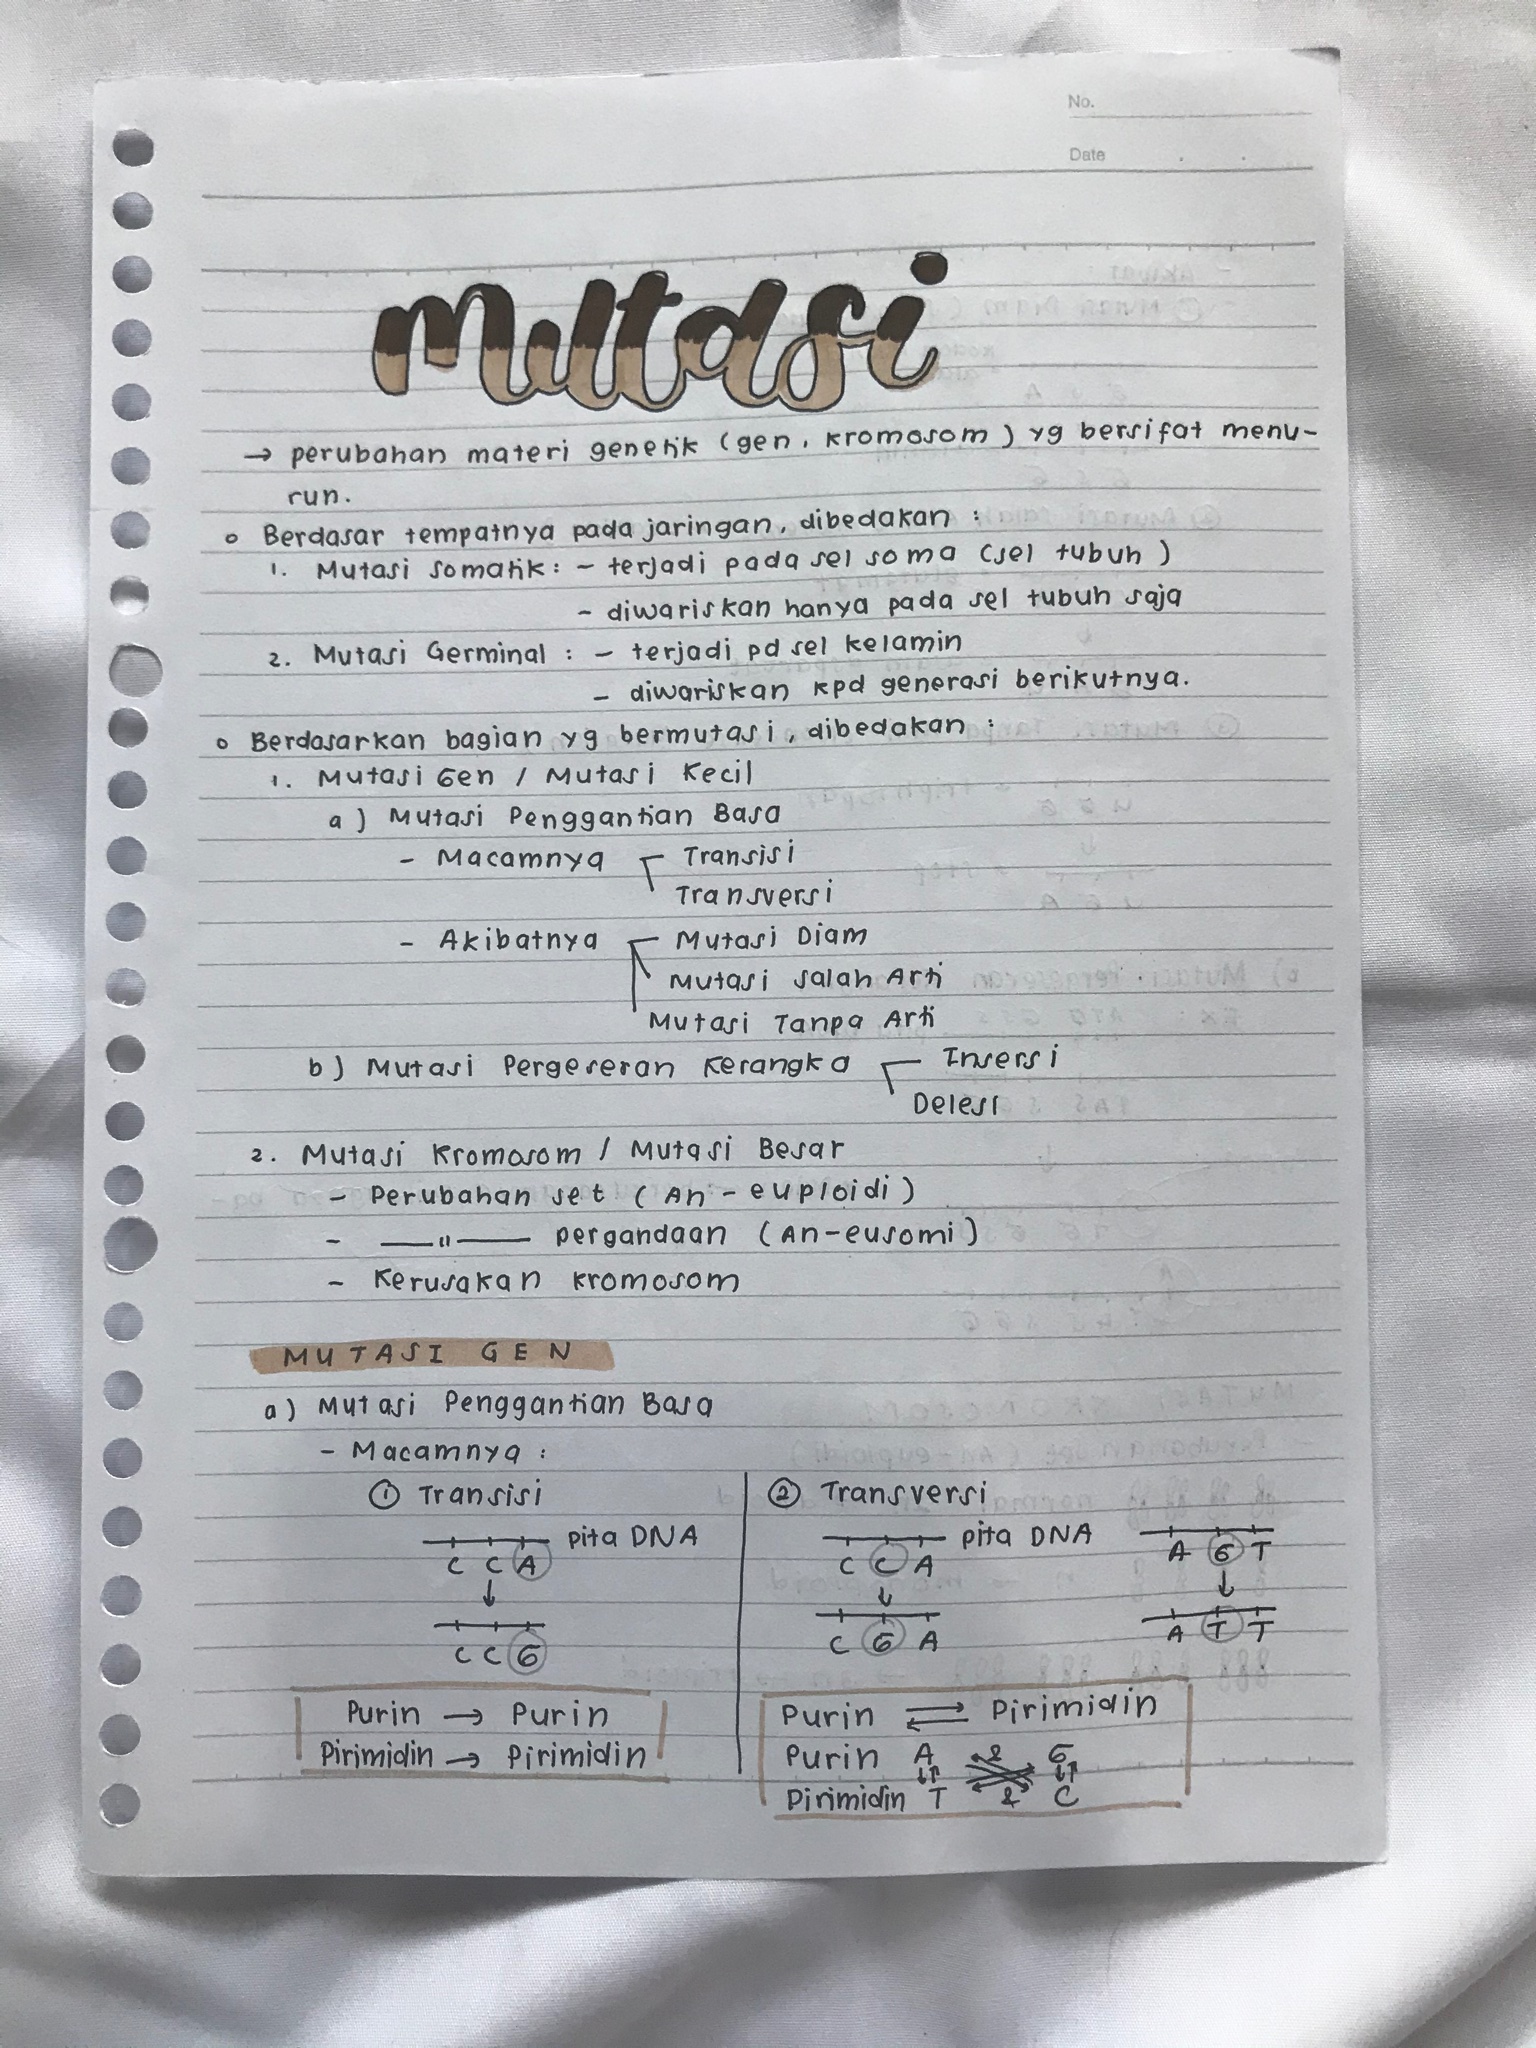 No.
Date
Mutasi
→ perubahan materi genetik (gen, kromosom) yg bersifat menu-
run.
o Berdasar tempatnya pada jaringan, dibedakan :
1. Mutasi somatik : - terjadi pada sel soma (sel tubuh)
- diwariskan hanya pada sel tubuh saja
2. Mutasi Germinal : - terjadi pd sel kelamin
- diwariskan kpd generasi berikutnya.
o Berdasarkan bagian yg bermutasi, dibedakan :
1. Mutasi Gen / Mutasi Kecil
a) Mutasi Penggantian Basa
- Macamnya Transisi
Transversi
- Akibatnya Mutasi Diam
Mutasi Salah Arti
Mutasi Tanpa Arti
b) Mutasi Pergeseran Kerangka Insersi
Delesi
2. Mutasi Kromosom / Mutasi Besar
- Perubahan set (An-euploidi)
- —"— pergandaan (An-eusomi)
- Kerusakan kromosom
MUTASI GEN
a) Mutasi Penggantian Basa
- Macamnya :
① Transisi
pita DNA
C C A
↓
C C G
Purin → Purin
Pirimidin → Pirimidin
② Transversi
pita DNA
C C A
↓
C G A
A G T
↓
A T T
Purin ⇌ Pirimidin
Purin A & G
↓↑ ↓↑
Pirimidin T & C